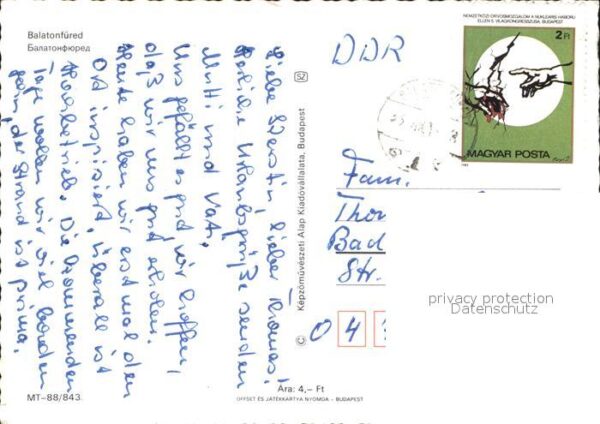 Balatonfüred
Балатонфюред
Liebe Kerstin, lieber Thomas!
Herzliche Urlaubsgrüße senden
Mutti und Vati.
Uns gefällt es gut, wir hoffen,
daß wir uns gut erholen.
Heute haben wir erst mal den
Ort inspiziert, überall ist
Hochbetrieb. Die kommenden
Tage wollen wir viel baden
gehn, der Strand ist prima.
MT-88/843.
SZ
© Képzőművészeti Alap Kiadóvállalata, Budapest
Ára: 4,– Ft
OFFSET ÉS JÁTÉKKÁRTYA NYOMDA - BUDAPEST
DDR
NEMZETKÖZI ORVOSMOZGALOM A NUKLEÁRIS HÁBORÚ
ELLEN 5. VILÁGKONGRESSZUSA, BUDAPEST
2 Ft
MAGYAR POSTA
Fam.
Thor
Bad
Str.
privacy protection
Datenschutz
0 4